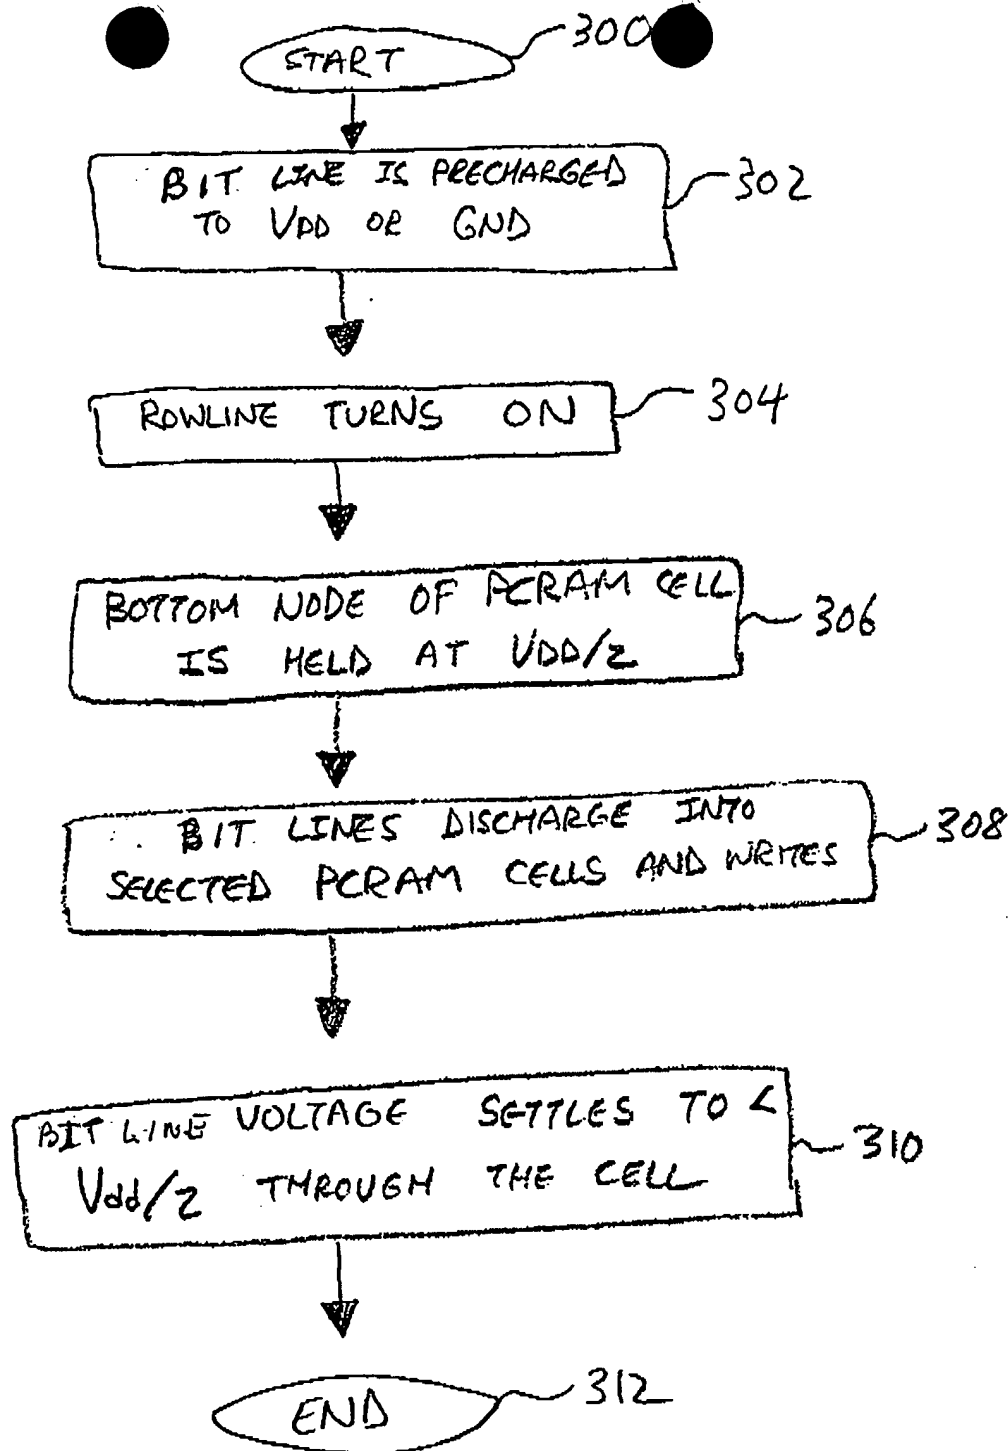 START 300
BIT LINE IS PRECHARGED
TO VDD OR GND
302
ROWLINE TURNS ON
304
BOTTOM NODE OF PCRAM CELL
IS HELD AT VDD/2
306
BIT LINES DISCHARGE INTO
SELECTED PCRAM CELLS AND WRITES
308
BIT LINE VOLTAGE SETTLES TO <
Vdd/2 THROUGH THE CELL
310
END 312